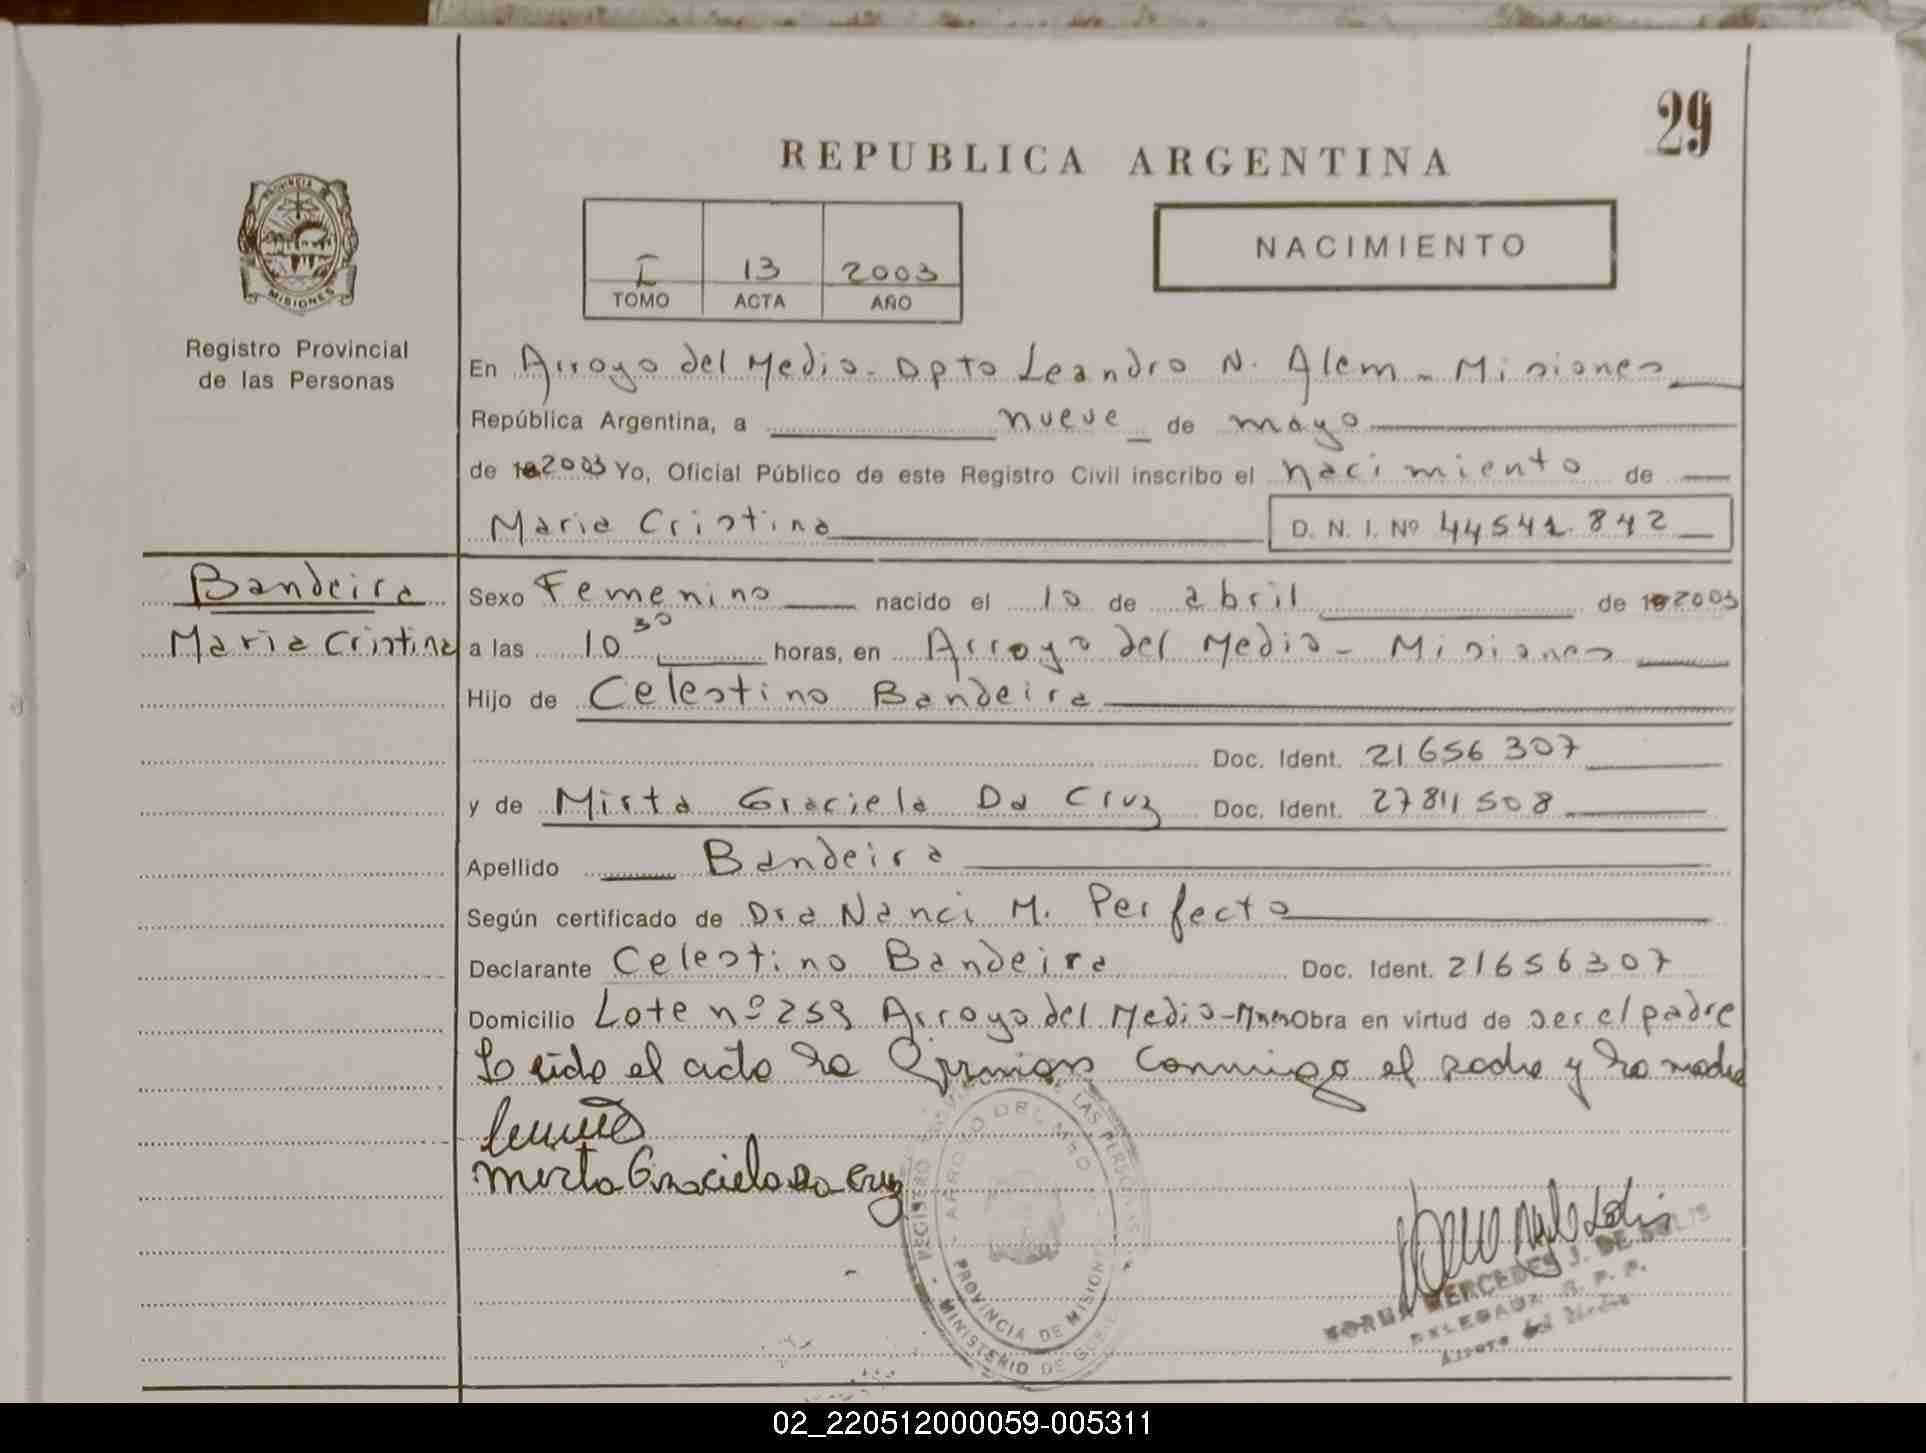 29
REPUBLICA ARGENTINA
PROVINCIA DE
MISIONES
I 13 2003
TOMO ACTA AÑO
NACIMIENTO
Registro Provincial
de las Personas
En Arroyo del Medio - Dpto Leandro N. Alem - Misiones
República Argentina, a nueve de mayo
de 2003 Yo, Oficial Público de este Registro Civil inscribo el nacimiento de
Maria Cristina D. N. I. Nº 44541.842
Bandeira
Maria Cristina
Sexo Femenino nacido el 10 de abril de 2003
a las 10 30 horas, en Arroyo del Medio - Misiones
Hijo de Celestino Bandeira
Doc. Ident. 21656307
y de Mirta Graciela Da Cruz Doc. Ident. 27811508
Apellido Bandeira
Según certificado de Dra Nanci M. Perfecto
Declarante Celestino Bandeira Doc. Ident. 21656307
Domicilio Lote nº 259 Arroyo del Medio - Mnes Obra en virtud de ser el padre
Leido el acta la firman conmigo el padre y la madre
Mirta Graciela Da Cruz
REGISTRO LAS PERSONAS
ARROYO DEL MEDIO
PROVINCIA DE MISIONES
MINISTERIO DE
NORMA MERCEDES J. DE SOLIS
DELEGADA R. P. P.
Arroyo del Medio
02_220512000059-005311